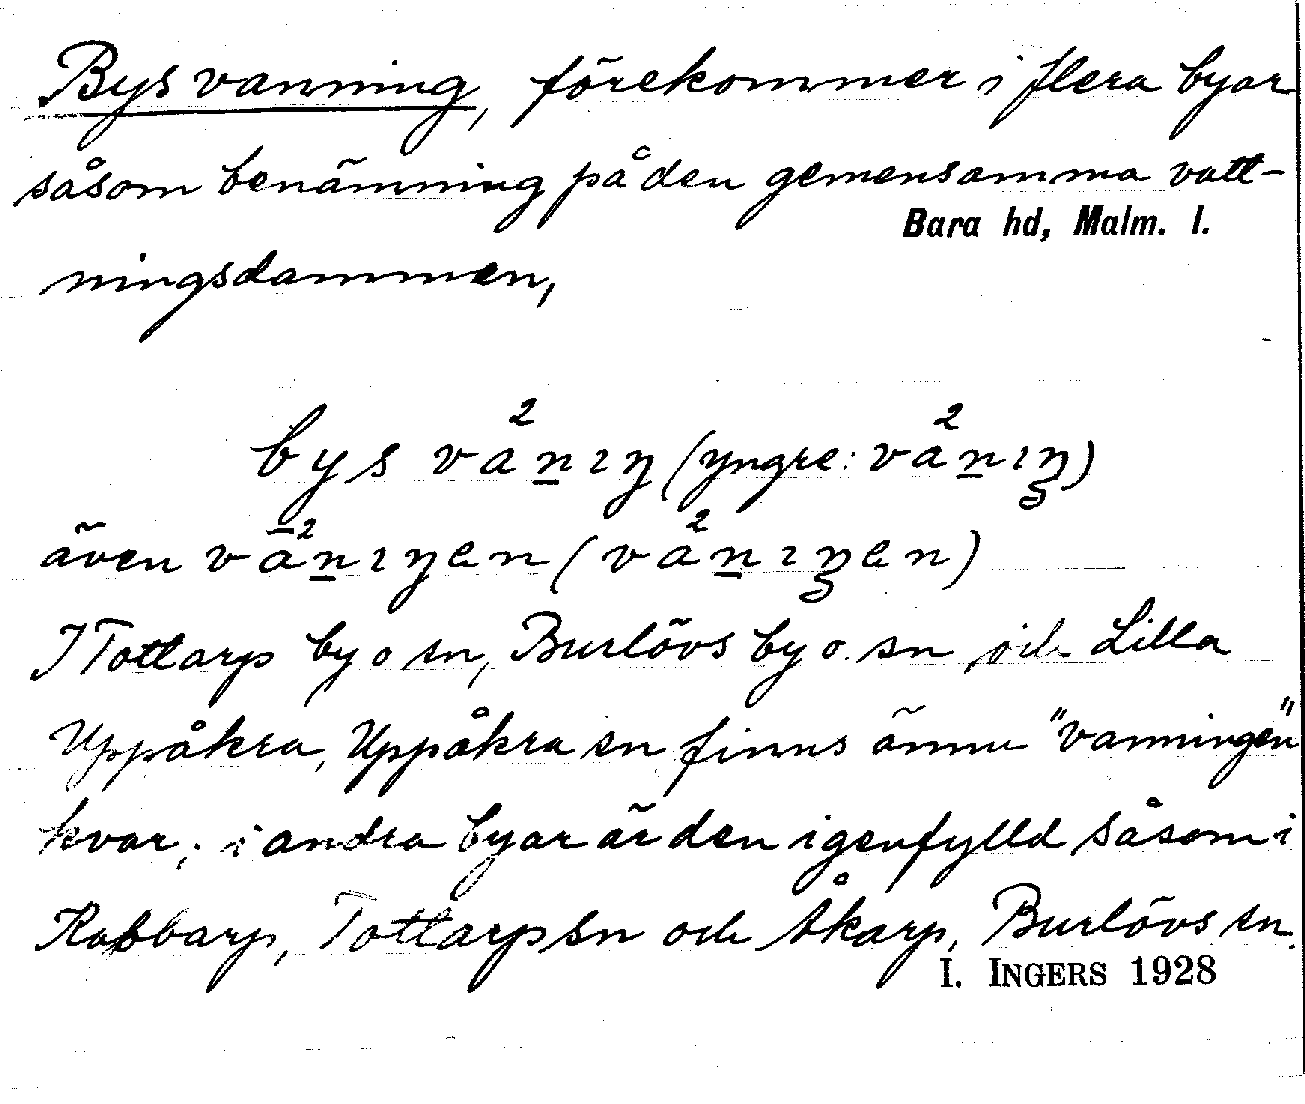 Bys vanning, förekommer i flera byar
såsom benämning på den gemensamma vatt-
Bara hd, Malm. l.
ningsdammen,
bys vånıŋ (yngre: vånıŋ)
även vånıŋen (vånıŋen)
I Tottarp by o sn, Burlövs by o. sn och Lilla
Uppåkra, Uppåkra sn finns ännu "vanningen"
kvar; i andra byar är den igenfylld såsom i
Kabbarp, Tottarps sn och Åkarp, Burlövs sn.
I. INGERS 1928